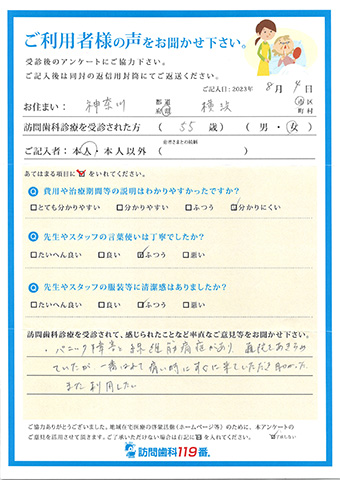 ご利用者様の声をお聞かせ下さい。
受診後のアンケートにご協力下さい。
ご記入後は同封の返信用封筒にてご返送ください。
ご記入日：2023年 8月 4日
お住まい： 神奈川 都道府県 横浜 市区町村
訪問歯科診療を受診された方 （ 55 歳） （ 男・女 ）
患者さまとの続柄
ご記入者：本人・本人以外 （ ）
あてはまる項目に☑をいれてください。
Q 費用や治療期間等の説明はわかりやすかったですか？
□とても分かりやすい □分かりやすい □ふつう ☑分かりにくい
Q 先生やスタッフの言葉使いは丁寧でしたか？
□たいへん良い □良い ☑ふつう □悪い
Q 先生やスタッフの服装等に清潔感はありましたか？
□たいへん良い □良い ☑ふつう □悪い
訪問歯科診療を受診されて、感じられたことなど率直なご意見等をお聞かせ下さい。
・パニック障害と線維筋痛症があり、通院をあきらめ
ていたが 一番 痛い時にすぐに来ていただき助かった。
また利用したい
ご協力ありがとうございました。地域在宅医療の啓蒙活動（ホームページ等）のために、本アンケートの
ご意見を活用させて頂きます。ご了承いただけない場合は右記に☑を入れてください。 ☑了承しない
訪問歯科119番®